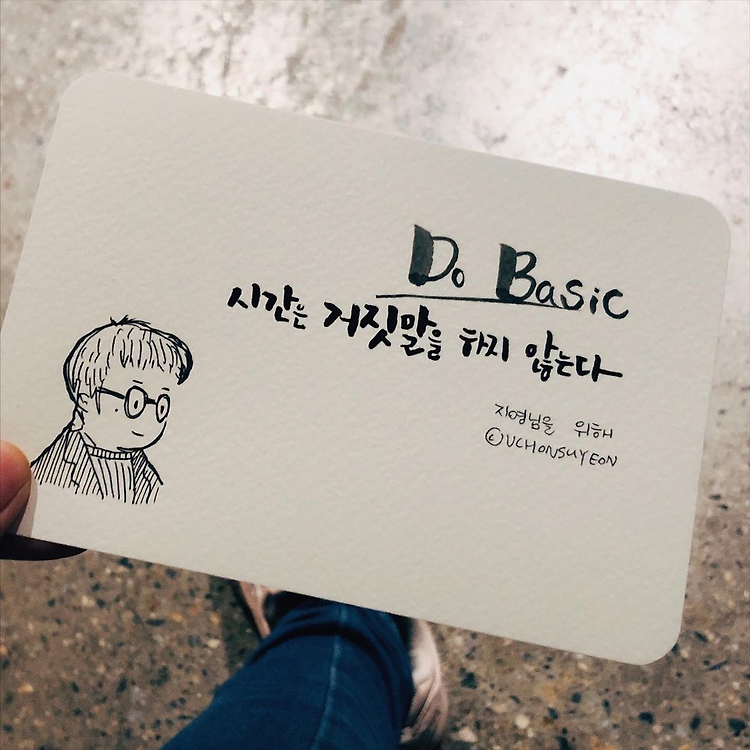 Do Basic
시간은 거짓말을 하지 않는다
지영님을 위해
©UCHONSUYEON